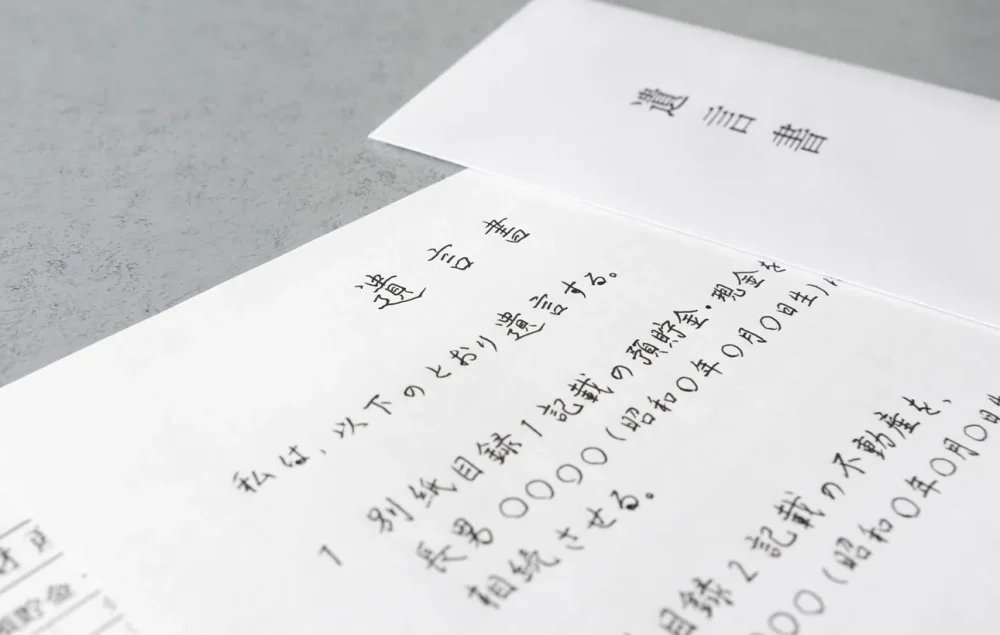 遺言書
遺言書
私は、以下のとおり遺言する。
1 別紙目録1記載の預貯金・現金を
長男〇〇〇〇(昭和〇年〇月〇日生)に
相続させる。
目録2記載の不動産を、
〇〇(昭和〇年〇月〇日生
預貯金